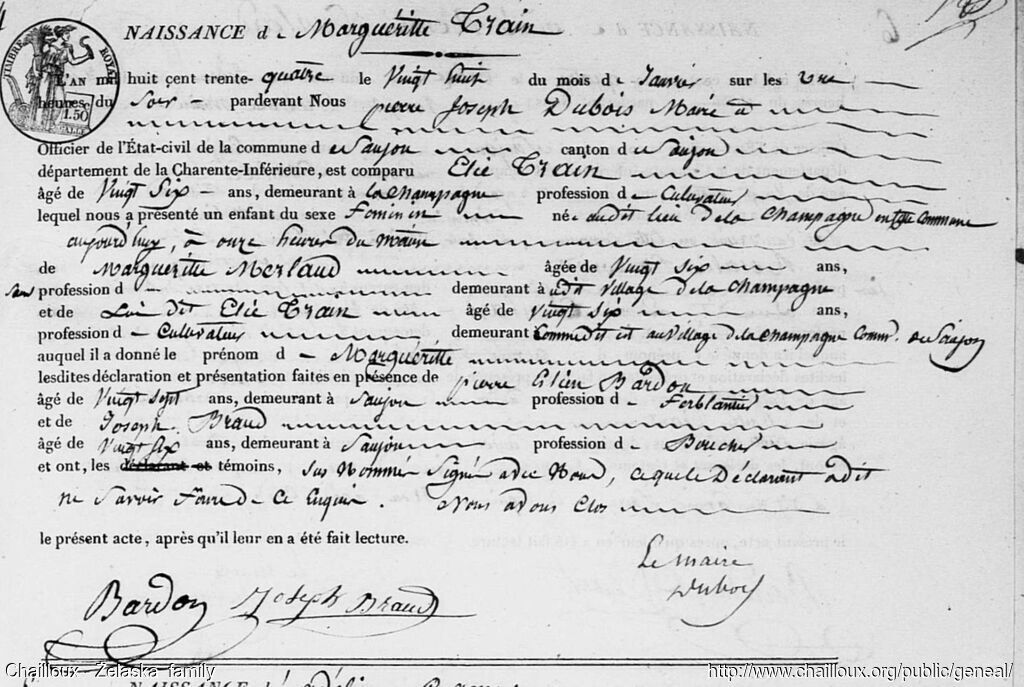 NAISSANCE de Marguéritte Train
TIMBRE ROYAL
1.50
L'AN mil huit cent trente-quatre le vingt huit du mois de Janvier sur les une
heures du Soir pardevant Nous pierre Joseph Dubois Maire
Officier de l'État-civil de la commune de Saujon canton de Saujon
département de la Charente-Inférieure, est comparu Elie Train
âgé de vingt Six ans, demeurant à la champagne profession de Cultivateur
lequel nous a présenté un enfant du sexe Feminin né audit lieu de la champagne en cette commune
aujourd'huy, à onze heures du matin
de Marguéritte Merlaud âgée de vingt six ans,
sans profession d demeurant audit village de la champagne
et de Lui dit Elie Train âgé de vingt six ans,
profession de Cultivateur demeurant Comme dit est au village de la champagne Comm. de Saujon
auquel il a donné le prénom de Marguéritte
lesdites déclaration et présentation faites en présence de pierre Bardon
âgé de vingt sept ans, demeurant à Saujon profession de Ferblantier
et de Joseph Braud
âgé de vingt six ans, demeurant à Saujon profession de Boucher
et ont, les déclarant et témoins, sur Nommés Signé avec Nous, ce que le Déclarant a dit
ne Savoir Faire de Ce Enquis. Nous avons Clos
le présent acte, après qu'il leur en a été fait lecture.
Le maire
Dubois
Bardon Joseph Braud
Chailloux - Zelaska family
http://www.chailloux.org/public/geneal/